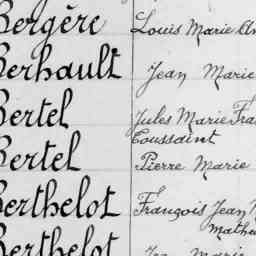 Bergère Louis Marie
Berhault Jean Marie
Bertel Jules Marie
Toussaint
Bertel Pierre Marie
Berthelot François Jean
Berthelot